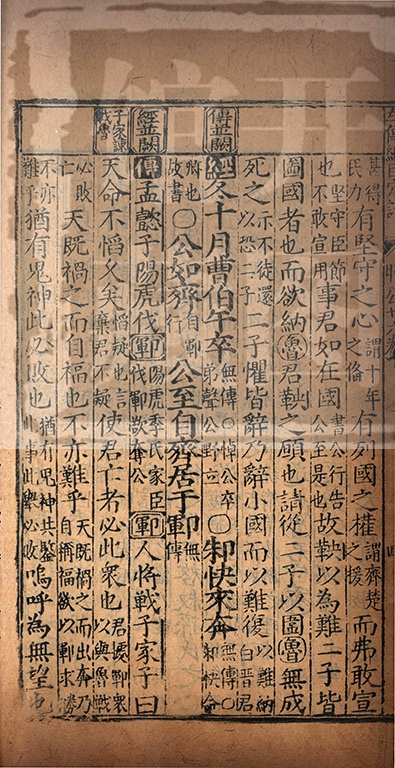 甚得民力有堅守之心謂十年之備有列國之權謂齊楚之援而弗敢宣
也堅守臣節也不敢宣用事君如在國書公行告公至是也故鞅以為難二子皆
圖國者也而欲納魯君鞅之願也請從二子以圍魯無成
死之示不徒還以恐二子二子懼皆辭乃辭小國而以難復以難納白晉君
傳並闕
經冬十月曹伯午卒無傳○悼公卒弟聲公野立○邾快來奔無傳○邾快命
卿也故書○公如齊自鄆行公至自齊居于鄆無傳
經並闕
傳孟懿子陽虎伐鄆陽虎季氏家臣伐鄆欲奪公鄆人將戰子家子曰
子家諫戰魯
天命不慆久矣慆疑也言棄君不疑使君亡者必此衆也君從鄆衆以與魯戰
必敗亡天既禍之而自福也不亦難乎天既禍之而出奔乃自福欲以鄆求勝
不亦難乎猶有鬼神此必敗也猶有鬼神共鑒此事此衆必敗嗚呼為無望也